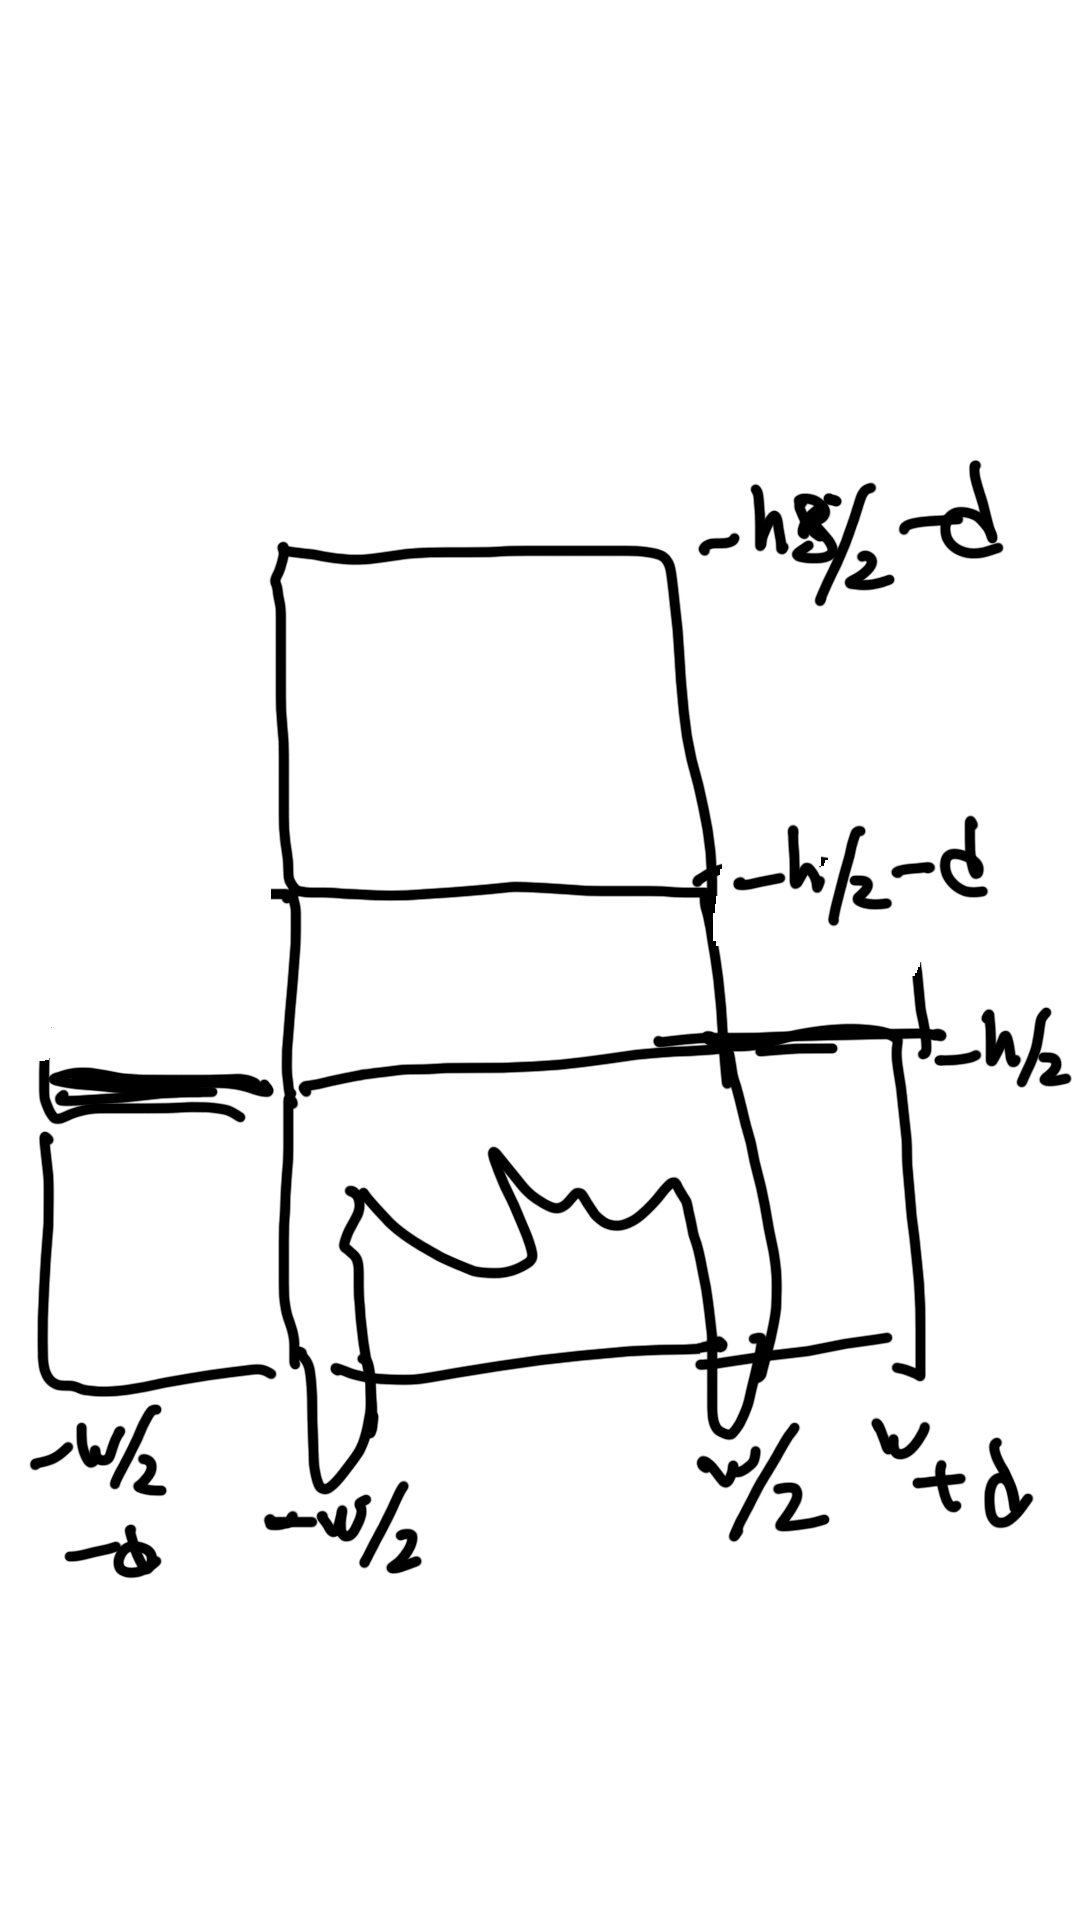 -h/2 -d
-h/2 -d
-h/2
-w/2
-d
-w/2
w/2
w
+d